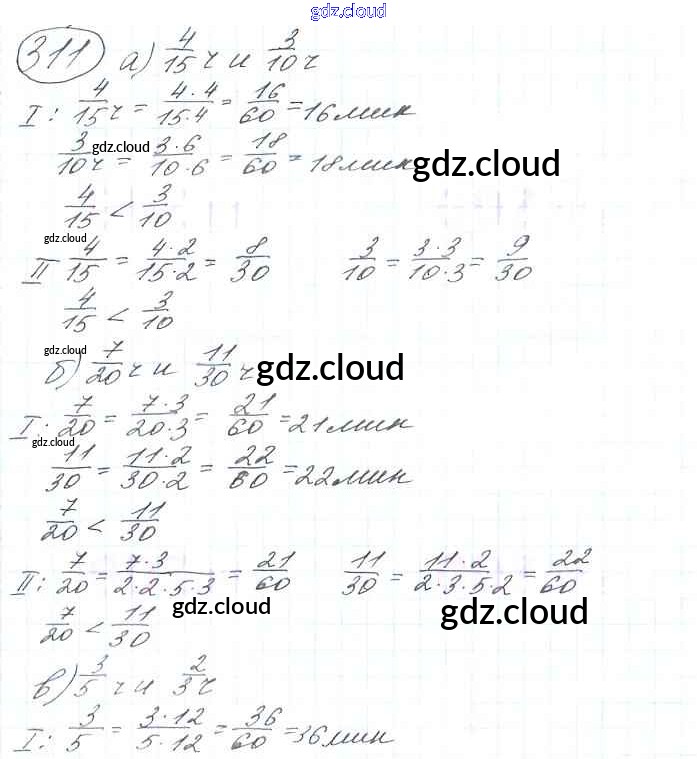 gdz.cloud
gdz.cloud
311 а) 4/15 ч и 3/10 ч
I: 4/15 ч = 4·4/15·4 = 16/60 = 16 мин
gdz.cloud
3/10 ч = 3·6/10·6 = 18/60 = 18 мин
gdz.cloud
4/15 < 3/10
gdz.cloud
II 4/15 = 4·2/15·2 = 8/30 3/10 = 3·3/10·3 = 9/30
4/15 < 3/10
gdz.cloud
б) 7/20 ч и 11/30 ч
gdz.cloud
I: 7/20 = 7·3/20·3 = 21/60 = 21 мин
gdz.cloud
11/30 = 11·2/30·2 = 22/60 = 22 мин
7/20 < 11/30
II: 7/20 = 7·3/2·2·5·3 = 21/60 11/30 = 11·2/2·3·5·2 = 22/60
gdz.cloud
gdz.cloud
7/20 < 11/30
в) 3/5 ч и 2/3 ч
I: 3/5 = 3·12/5·12 = 36/60 = 36 мин